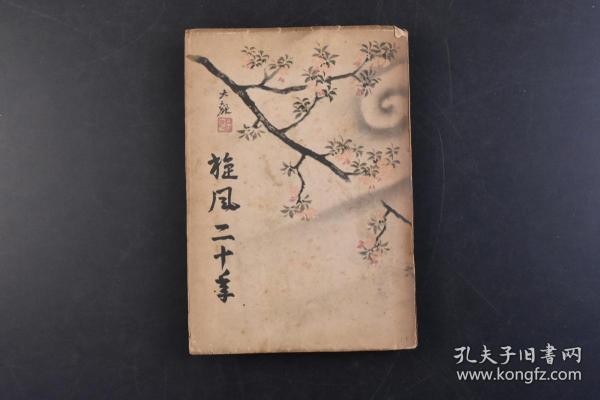 大観
旋風二十年
孔夫子旧書网
www.kongfz.com